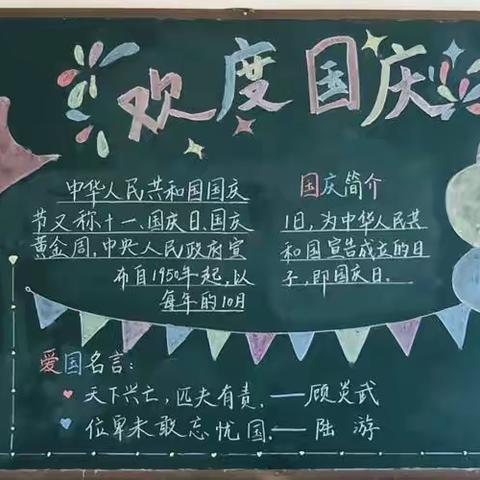 欢度国庆
中华人民共和国国庆
节又称十一、国庆日、国庆
黄金周,中央人民政府宣
布自1950年起,以
每年的10月
国庆简介
1日,为中华人民共
和国宣告成立的日
子,即国庆日.
爱国名言:
天下兴亡,匹夫有责.——顾炎武
位卑未敢忘忧国.——陆游